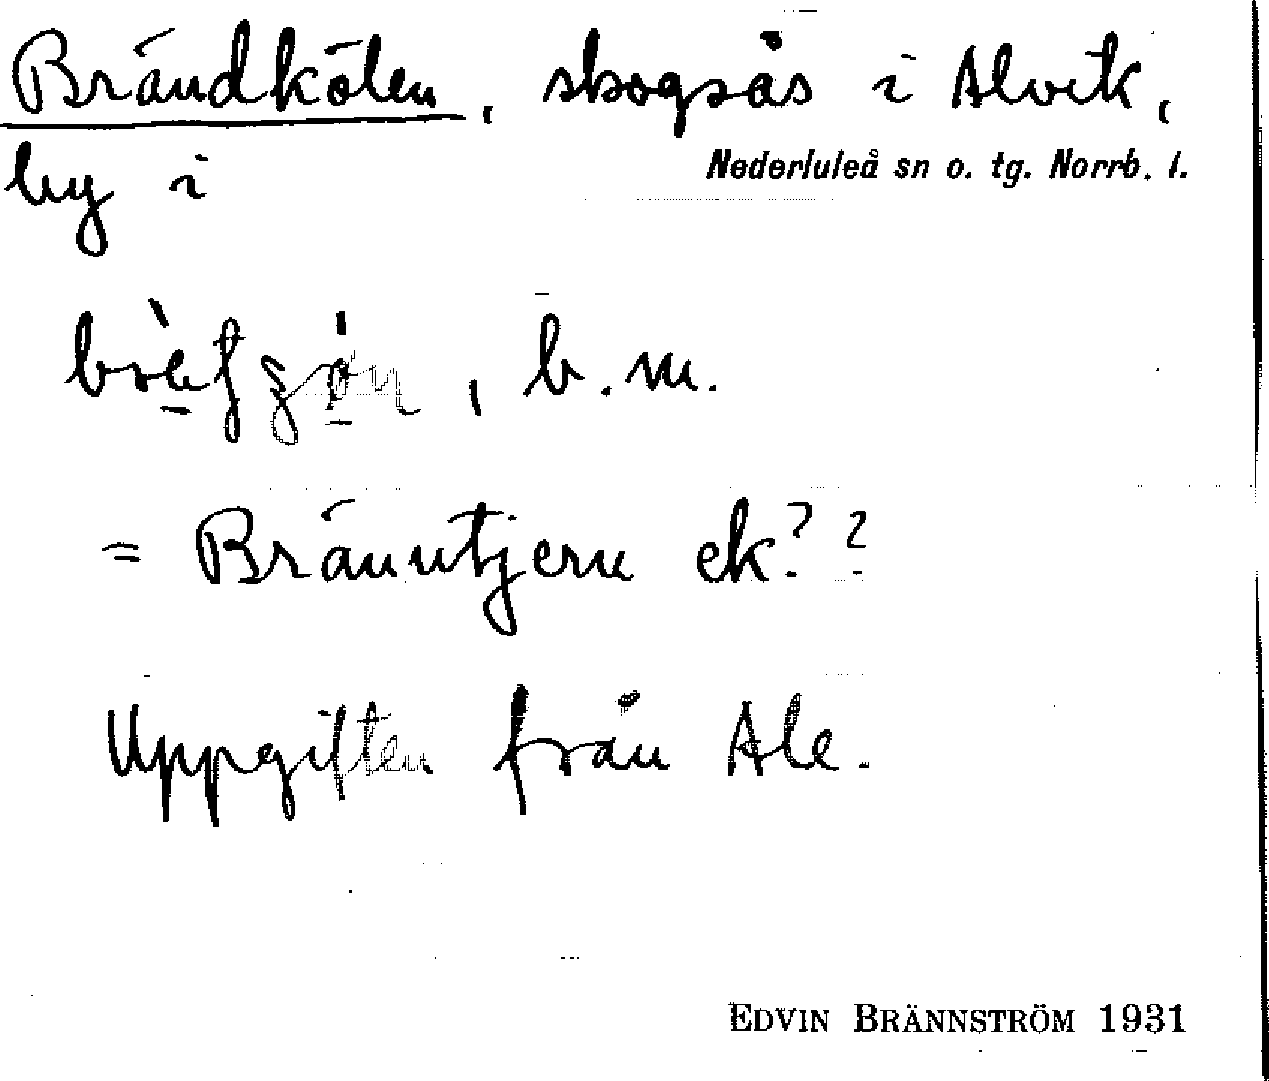 Brändkölen, skogsås i Alvik,
by i Nederluleå sn o. tg. Norrb. l.
, b.m.
= Bränntjern ek? ?
Uppgiften från Ale.
EDVIN BRÄNNSTRÖM 1931